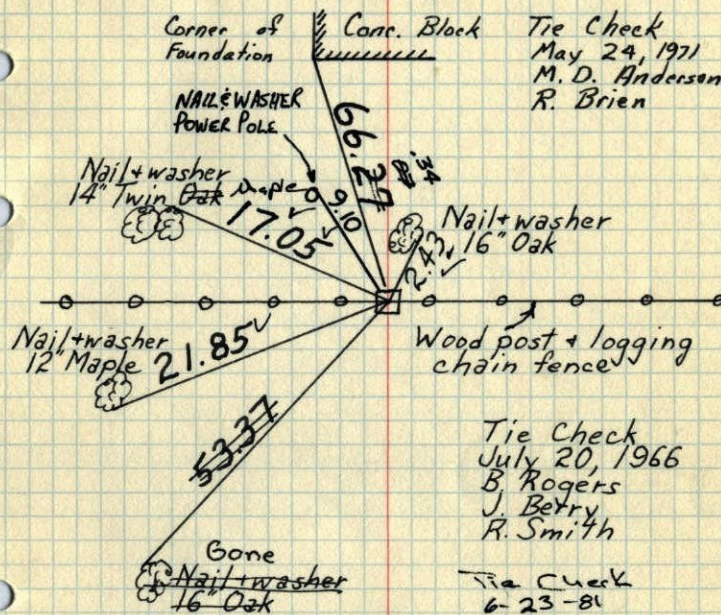 Corner of
Foundation
Conc. Block
Tie Check
May 24, 1971
M. D. Anderson
R. Brien
NAIL & WASHER
POWER POLE
66.27
.34
Nail + washer
14" Twin Oak Maple
17.05 ✓
9.10
2.43 ✓
Nail + washer
16" Oak
Nail + washer
12" Maple
21.85 ✓
Wood post + logging
chain fence
53.37
Tie Check
July 20, 1966
B. Rogers
J. Berry
R. Smith
Gone
Nail + washer
16" Oak
Tie Check
6-23-81